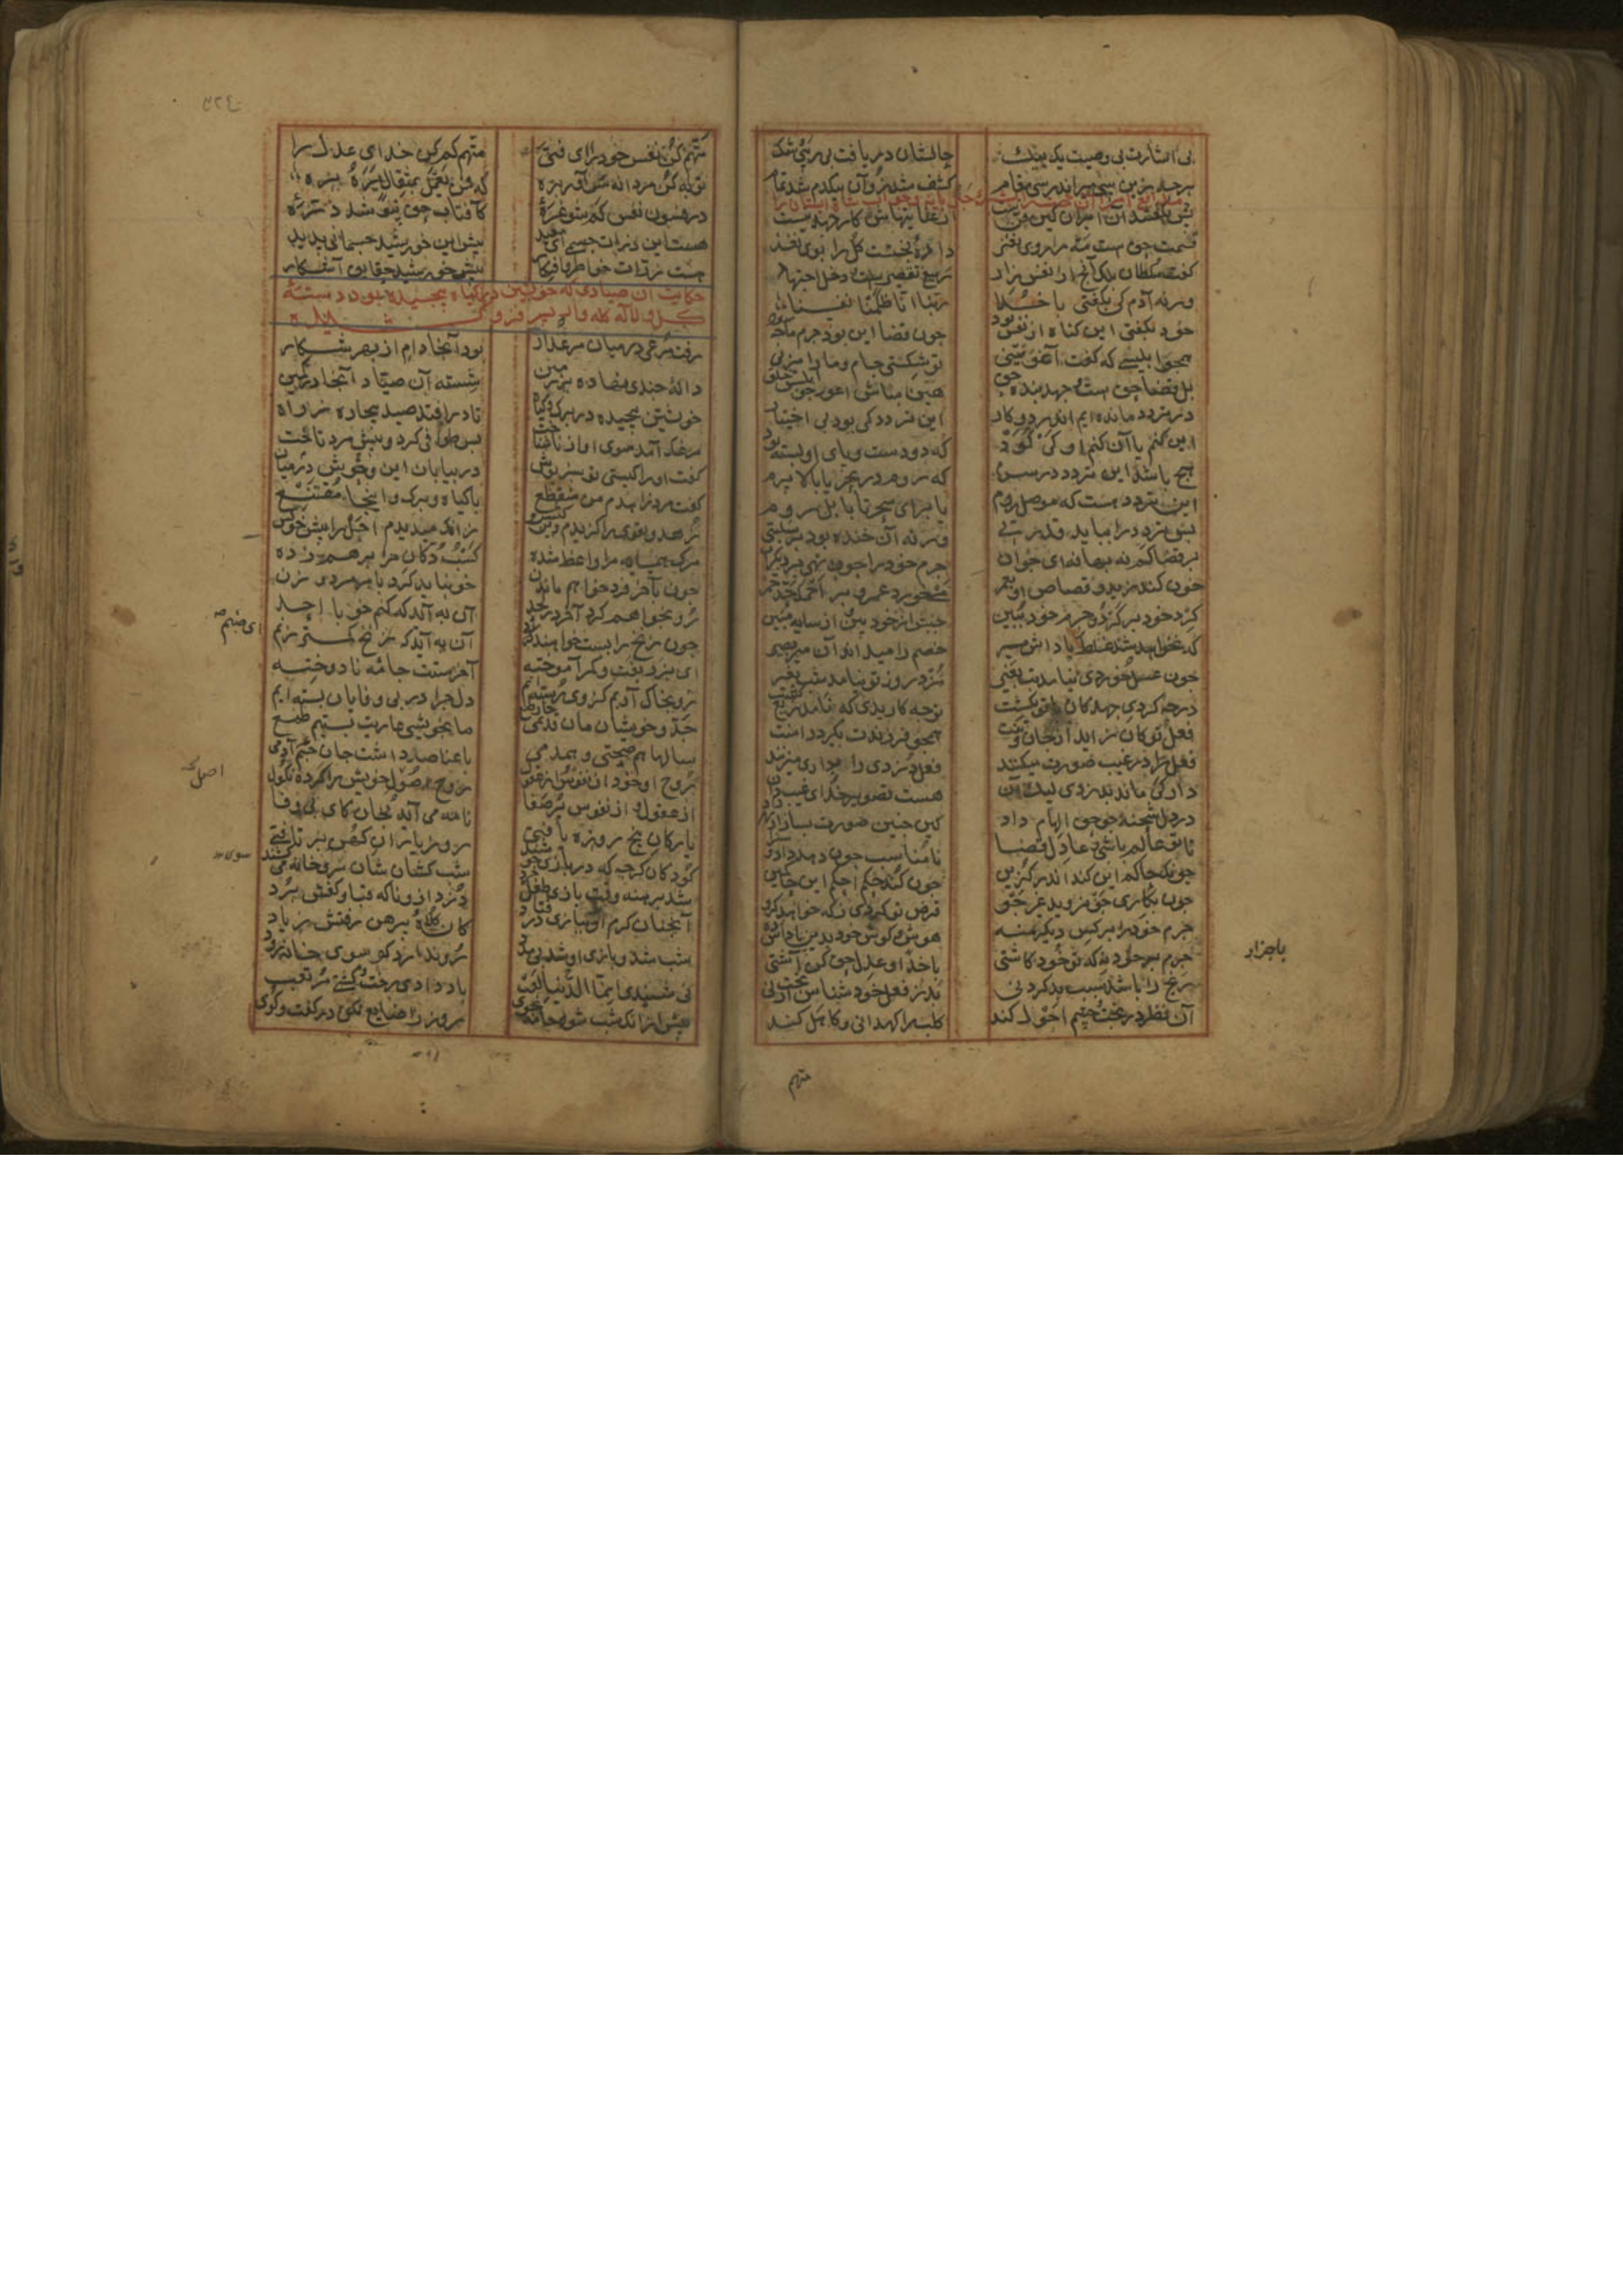 بی اشارت بی وصیت یک بیک حالشان دریافت بی ریبی و شک
هرچه زین سی میر اندر سی مقام کشف شد زو آن بیکدم شد تمام
پس بگفتند آن امیران کین فنیست از عنایتهاش کار جهد نیست
قسمت حق است مه را روی نغز داده بختست گل را بوی نغز
گفت سلطان بلک آنچ از نفس زاد ریع تقصیرست و دخل اجتهاد
ورنه آدم کی بگفتی با خدا ربنا انا ظلمنا نفسنا
خود بگفتی این گناه از نفس بود چون قضا این بود حزم ما چه سود
همچو ابلیسی که گفت اغویتنی تو شکستی جام و ما را میزنی
بل قضا حق است و جهد بنده حق هین مباش اعور چو ابلیس خلق
در تردد مانده ایم اندر دو کار این تردد کی بود بی اختیار
این کنم یا آن کنم او کی گود که دو دست و پای او بسته بود
هیچ باشد این تردد در سرم که روم در بحر یا بالا پرم
این تردد هست که موصل روم یا برای سحر تا بابل روم
پس تردد را بباید قدرتی ورنه آن خنده بود بر سبلتی
بر قضا کم نه بهانه ای جوان جرم خود را چون نهی بر دیگران
خون کند زید و قصاص او بعمر می خورد عمرو و بر احمد حد خمر
گرد خود بر گرد و جرم خود ببین جنبش از خود بین و از سایه مبین
که نخواهد شد غلط پاداش میر خصم را میداند آن میر بصیر
چون عسل خوردی نیامد تب بغیر مزد روز تو نیامد شب بغیر
در چه کردی جهد کان با تو نگشت تو چه کاریدی که نامد ریع کشت
فعل تو کان زاید از جان و تنت همچو فرزندت بگیرد دامنت
فعل را در غیب صورت میکنند فعل دزدی را نه داری میزنند
دار کی ماند بدزدی لیک آن هست تصویر خدای غیب دان
در دل شحنه چو حق الهام داد کین چنین صورت بساز از بهر داد
تا تو عالم باشی و عادل قضا نامناسب چون دهد داد و سزا
چونک حاکم این کند اندر گزین چون کند حکم احکم این حاکمین
چون بکاری جو نروید غیر جو قرض تو کردی ز که خواهد گرو
جرم خود را بر کس دیگر منه هوش و گوش خود بدین پاداش ده
جرم بر خود نه که تو خود کاشتی با خدا و عدل حق کن آشتی
رنج را باشد سبب بد کردنی بد ز فعل خود شناس از بخت نی
آن نظر در بخت چشم احول کند کلب را کهدانی و کاهل کند
باجزار
متهم
متهم کن نفس خود را ای فتی متهم کم کن خدای عدل را
توبه کن مردانه سر آور بره که فمن یعمل بمثقال یره
در فسون نفس کم شو غره کافتاب حق نپوشد ذره
هست این ذرات جسمی ای مفید پیش این خورشید جسمانی پدید
هست ذرات خواطر و افتکار پیش خورشید حقایق آشکار
حکایت آن صیادی که خویشتن در گیاه پیچیده بود و دسته
گل و لاله کله وار بر سر فرو کشیده
رفت مرغی در میان مرغزار بود آنجا دام از بهر شکار
دانه چندی نهاده بر زمین شسته آن صیاد آنجا در کمین
خویشتن پیچیده در برگ و گیاه تا در افتد صید بیچاره ز راه
مرغک آمد سوی او از ناشناخت پس طوافی کرد و پیش مرد تاخت
گفت او را کیستی تو سبزپوش در بیابان این وحوش در میان
گفت مرد زاهدم من منقطع با گیاه و برگ و اینجا مقتنع
زهد و تقوی را گزیدم دین و کیش زانک میدیدم اجل را پیش خویش
مرگ همسایه مرا واعظ شده کسب و دکان مرا برهم زده
چون بآخر فرد خواهم ماندن خو نباید کرد با هر مرد و زن
رو بخواهم کرد آخر در لحد آن به آید که کنم خو با احد
چون زنخ را بست خواهند ای صنم آن به آید که زنخ کمتر زنم
ای بزربفت و کمر آموخته آخرستت جامه نادوخته
رو بخاک آریم کز وی رسته ایم دل چرا در بی وفایان بسته ایم
جد و خویشان مان قدیمی چار طبع ما بخویشی عاریت بستیم طمع
سالها هم صحبتی و همدمی با عناصر داشت جان جسم آدمی
روح او خود از نفوس و از عقول روح اصول خویش را کرده نکول
از عقول و از نفوس پر صفا نامه می آید بجان کای بی وفا
یارکان پنج روزه یافتی رو ز یاران کهن بر تافتی
کودکان گرچه که در بازی خوشند شب کشانشان سوی خانه می کشند
شد برهنه وقت بازی طفل خرد دزد از وی ناگه قبا و کفش برد
آنچنان گرم او ببازی در فتاد کان کلاه پیرهن رفتش ز یاد
شب شد و بازی او شد بی مدد رو ندارد کو سوی خانه رود
نی شنیدی انما الدنیا لعب باد دادی رخت و گشتی مرتعب
پیش از آنک شب شود جامه بجوی روز را ضایع مکن در گفت و گوی
ای صنم صح
اصل
سوی